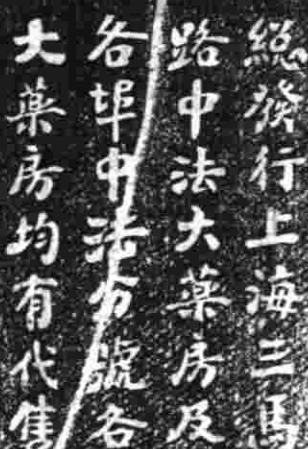 總發行上海三馬
路中法大藥房及
各埠中法分號各
大藥房均有代售